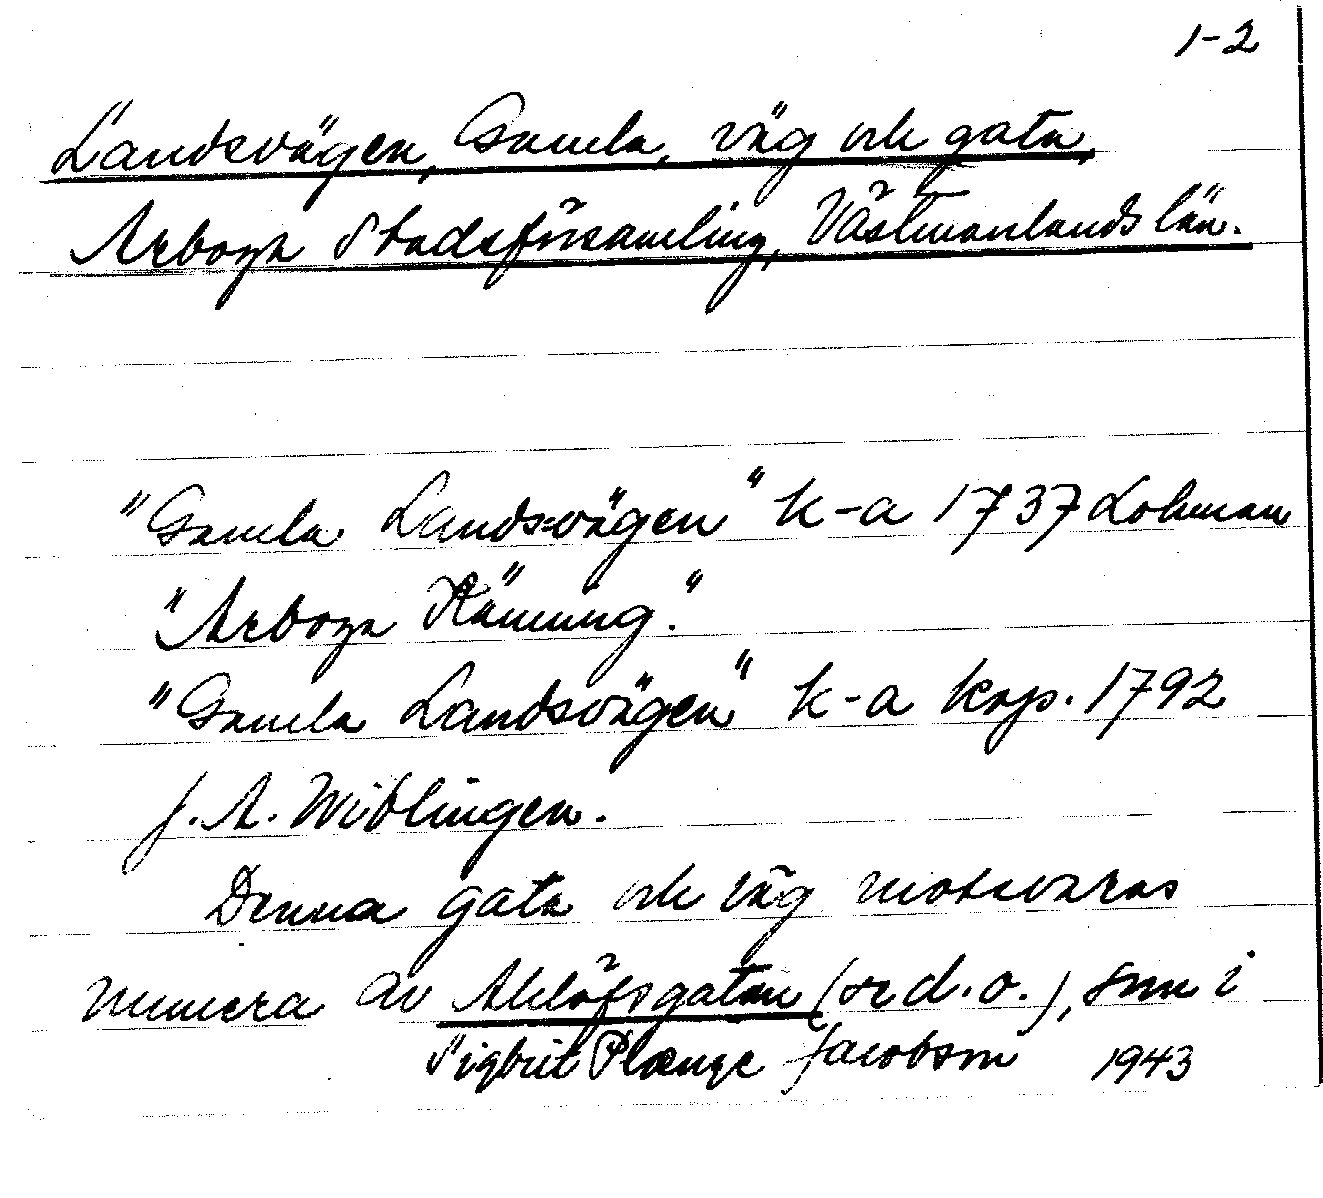 1-2
Landsvägen, Gamla, väg och gata,
Arboga Stadsförsamling, Västmanlands län.
"Gamla Landsvägen" k-a 1737 Lohman
"Arboga Känning."
"Gamla Landsvägen" k-a kop. 1792
J. A. Wiblingen.
Denna gata och väg motsvaras
numera av Ahllöfsgatan (se d. o.), som i
Sigbrit Plænge Jacobson 1943